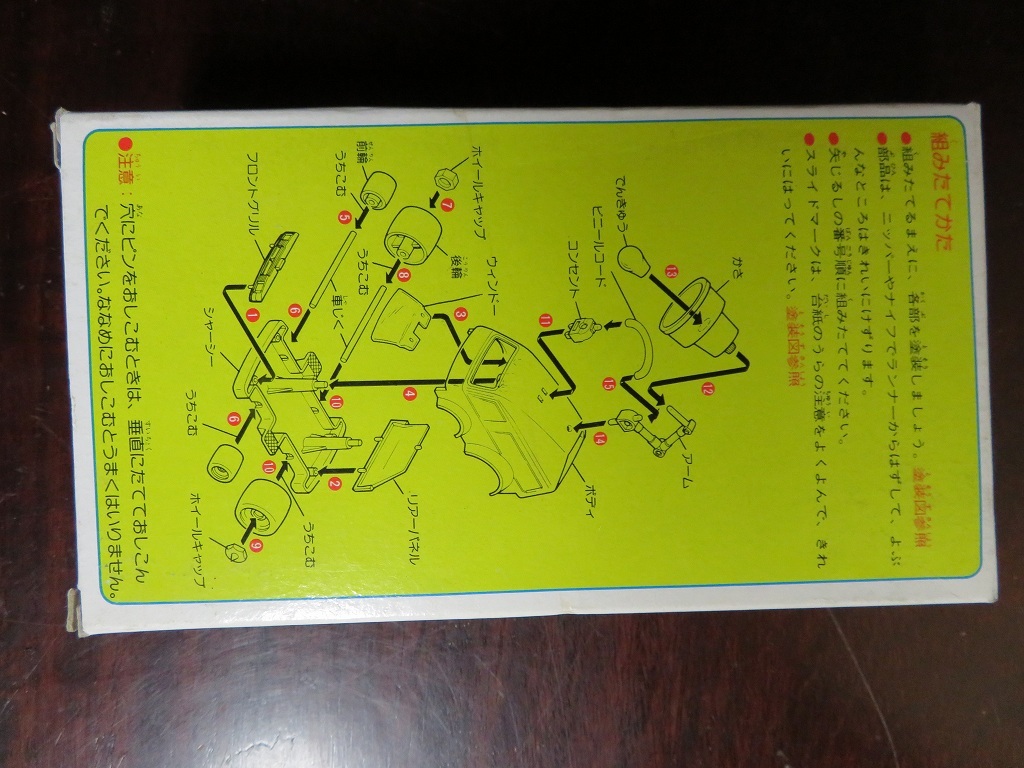 組みたてかた
●組みたてるまえに、各部を塗装しましょう。塗装図参照
●部品は、ニッパーやナイフでランナーからはずして、よぶ
んなところはきれいにけずります。
●矢じるしの番号順に組みたててください。
●スライドマークは、台紙のうらの注意をよくよんで、きれ
いにはってください。塗装図参照
かさ
でんきゅう
ビニールコード
コンセント
13
12
11
15
14
アーム
ボディ
ホイールキャップ
7
後輪
ウィンドー
3
8
うちこむ
前輪
うちこむ
5
車じく
6
4
フロントグリル
1
シャーシー
10
リアーパネル
2
うちこむ
6
10
うちこむ
9
ホイールキャップ
●注意：穴にピンをおしこむときは、垂直にたてておしこん
でください。ななめにおしこむとうまくはいりません。